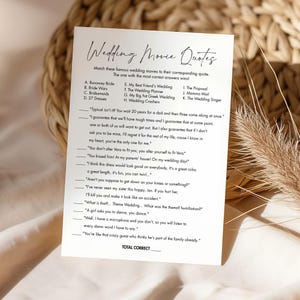 Wedding Movie Quotes
Match these famous wedding movies to their corresponding quote.
The one with the most correct answers wins!
A. Runaway Bride E. My Best Friend's Wedding I. The Proposal
B. Bride Wars F. The Wedding Planner J. Mamma Mia!
C. Bridesmaids G. My Big Fat Greek Wedding K. The Wedding Singer
D. 27 Dresses H. Wedding Crashers
"Typical isn't it? You wait 20 years for a dad and then three come along at once."
"I guarantee that we'll have tough times and I guarantee that at some point,
one or both of us will want to get out. But I also guarantee that if I don't
ask you to be mine, I'll regret it for the rest of my life, cause I know in
my heart, you're the only one for me."
"You don't alter Vera to fit you, you alter yourself to fit Vera."
"You kissed him! At my parents' house! On my wedding day!"
"I think this dress would look good on everybody, it's a great color,
a great length, it's fun, you can twirl..."
"Aren't you suppose to get down on your knees or something?"
"I've never seen my sister this happy, Ian. If you hurt her,
I'll kill you and make it look like an accident."
"What is that?... Theme Wedding... What was the theme?
"A girl asks you to dance, you dance."
"Well, I have a microphone and you don't, so you will listen to
every damn word I have to say."
"You're like that crazy guest who thinks he's part of the family already."
TOTAL CORRECT